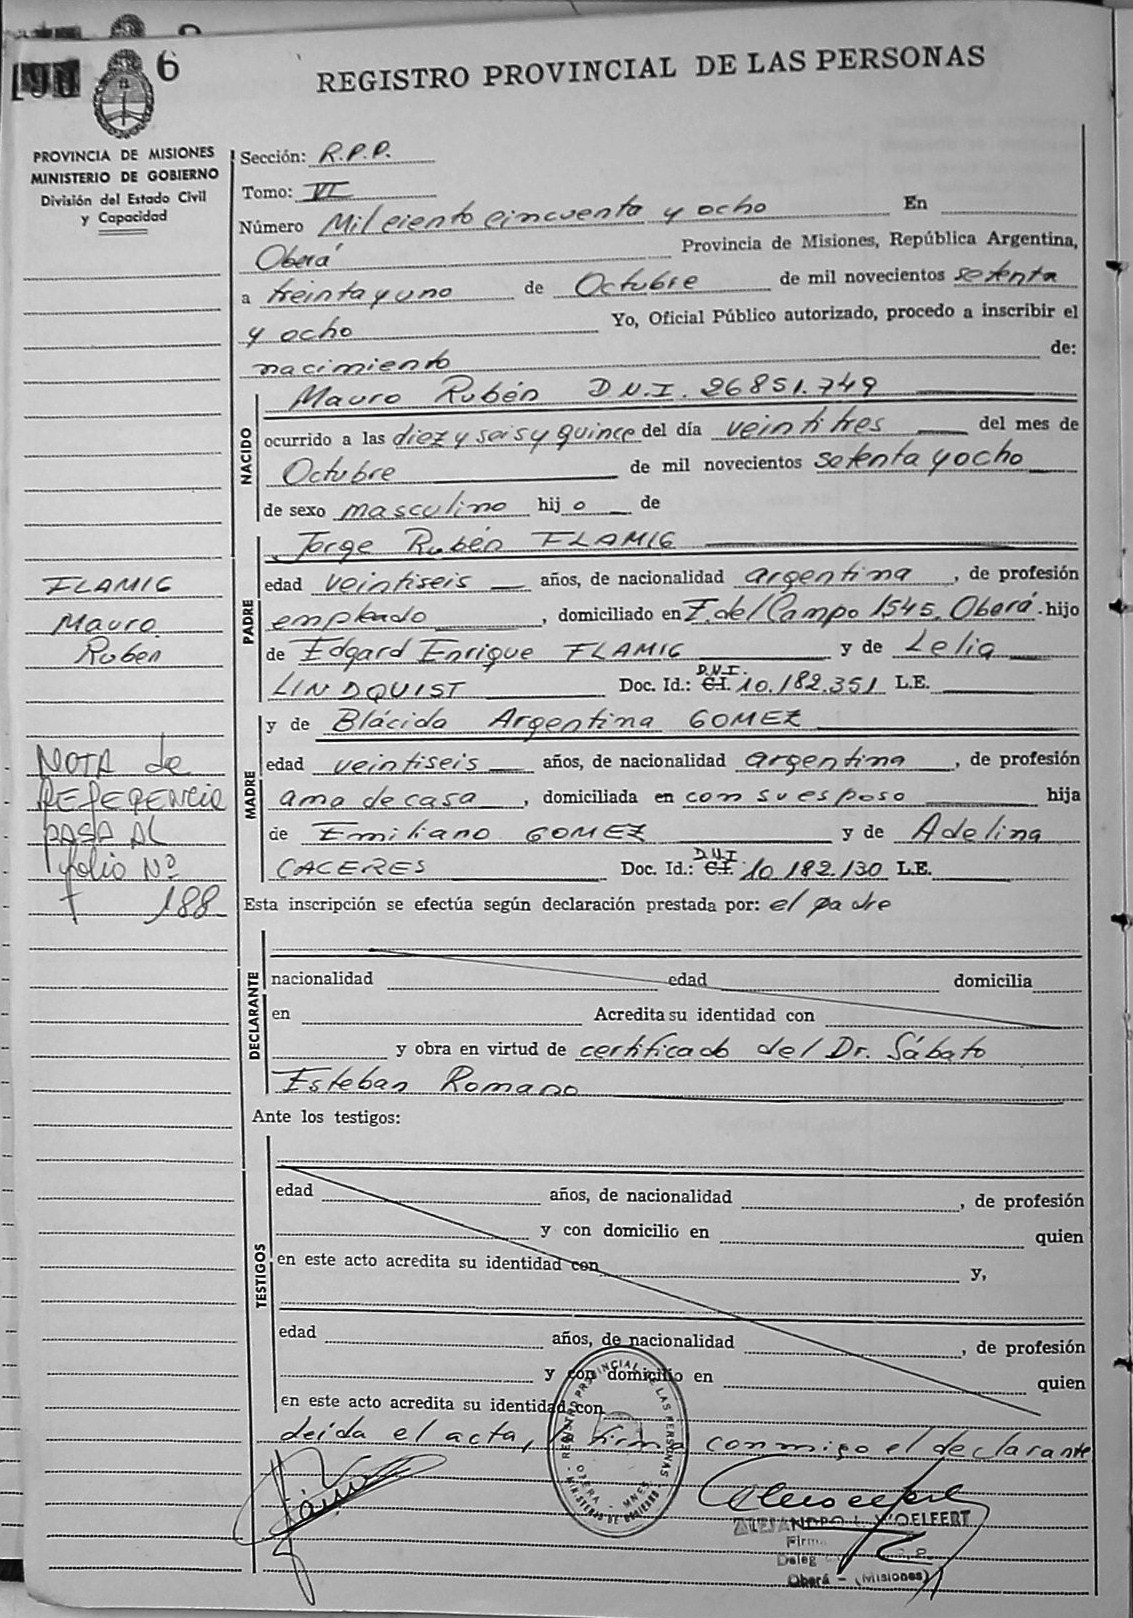 6
REGISTRO PROVINCIAL DE LAS PERSONAS
PROVINCIA DE MISIONES
MINISTERIO DE GOBIERNO
División del Estado Civil
y Capacidad
Sección: R.P.P.
Tomo: VI
Número Mil ciento cincuenta y ocho En
Oberá Provincia de Misiones, República Argentina,
a treinta y uno de Octubre de mil novecientos setenta
y ocho Yo, Oficial Público autorizado, procedo a inscribir el
nacimiento de:
NACIDO
Mauro Rubén D.N.I. 26851.749
ocurrido a las diez y seis y quince del día veintitres del mes de
Octubre de mil novecientos setenta y ocho
de sexo masculino hij o de
PADRE
Jorge Rubén FLAMIG
edad veintiseis años, de nacionalidad argentina, de profesión
empleado, domiciliado en F. del Campo 1545. Oberá. hijo
de Edgard Enrique FLAMIG y de Lelia
LINDQUIST Doc. Id.: D.N.I. C.I. 10.182.351 L.E.
FLAMIG
Mauro
Rubén
MADRE
y de Blácida Argentina GOMEZ
edad veintiseis años, de nacionalidad argentina, de profesión
ama de casa, domiciliada en con su esposo hija
de Emiliano GOMEZ y de Adelina
CACERES Doc. Id.: D.N.I. C.I. 10.182.130 L.E.
NOTA de
REFERENCIA
PASA AL
folio Nº
188
Esta inscripción se efectúa según declaración prestada por: el padre
DECLARANTE
nacionalidad edad domicilia
en Acredita su identidad con
y obra en virtud de certificado del Dr. Sábato
Esteban Romano
Ante los testigos:
TESTIGOS
edad años, de nacionalidad, de profesión
y con domicilio en quien
en este acto acredita su identidad con y,
edad años, de nacionalidad, de profesión
y con domicilio en quien
en este acto acredita su identidad con
Leida el acta, la firma conmigo el declarante
REGISTRO PROVINCIAL DE LAS PERSONAS
MINISTERIO DE GOBIERNO
ALEJANDRO L. WOELFERT
Oberá - (Misiones)